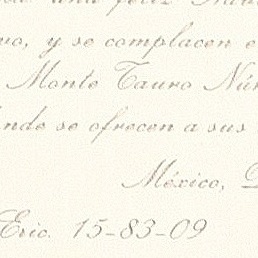 una feliz
vo, y se complacen e
Monte Tauro Nú
nde se ofrecen a sus
México, D
Eric. 15-83-09